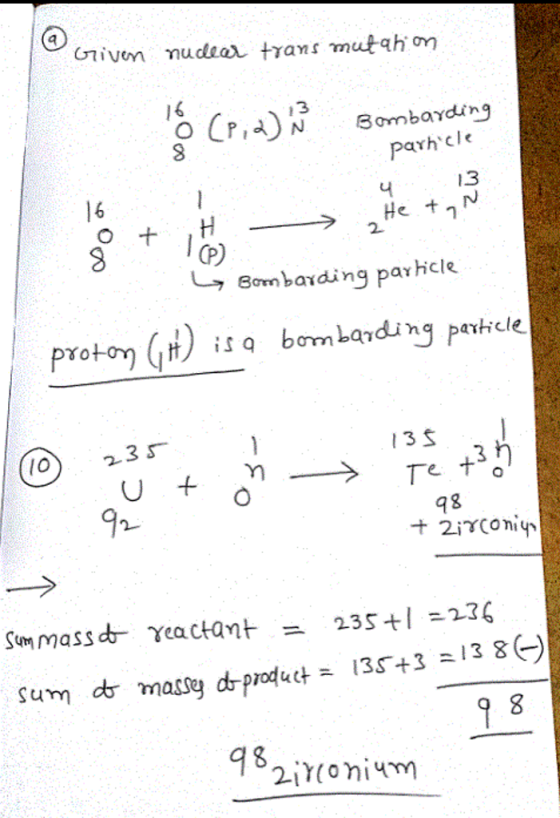 9 Given nuclear transmutation
16 8 O (P,α) 13 N Bombarding particle
16 8 O + 1 1 H (P) → 4 2 He + 13 7 N
↳ Bombarding particle
proton (1 1 H) is a bombarding particle
10 235 92 U + 1 0 n → 135 Te + 3 1 0 n
+ 98 Zirconium
→
Sum mass of reactant = 235+1 = 236
sum of masses of product = 135+3 = 138 (-)
98
98 Zirconium